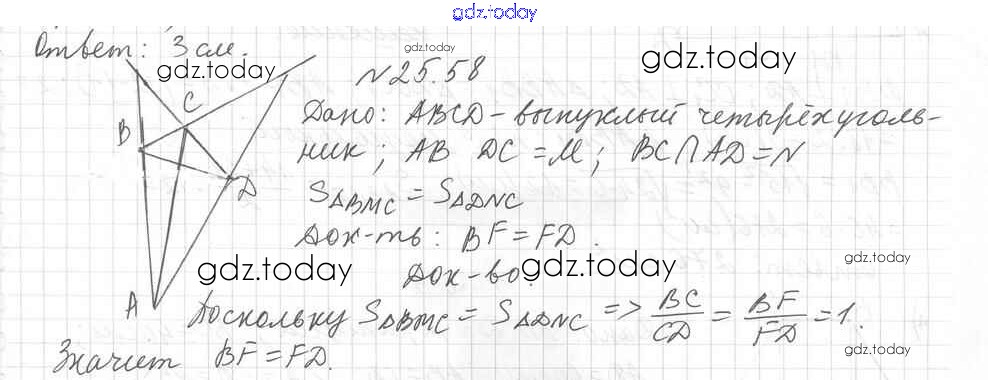 gdz.today
Ответ: 3 см.
gdz.today
gdz.today
gdz.today
N 25.58
gdz.today
Дано: ABCD - выпуклый четырёхуголь-
ник; AB DC = M; BC∩AD = N
S△BMC = S△DNC
Док-ть: BF = FD.
gdz.today
Док-во:
gdz.today
gdz.today
B
C
D
A
Поскольку S△BMC = S△DNC => BC/CD = BF/FD = 1.
Значит BF = FD.
gdz.today